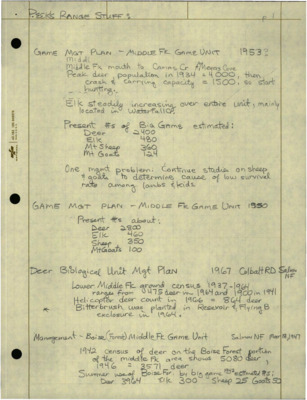 PECK'S RANGE STUFF:
P 1
GAME MGT PLAN - MIDDLE FK GAME UNIT 1953:
Middl
Middle Fk mouth to Camas Cr
Peak deer population in 1934 = 4,000, then
crash & carrying capacity = 1500, so start
hunting.
Elk steadily increasing over entire unit, mainly
located in Waterfall Cr.
Present #s of Big Game estimated:
Deer 2400
Elk 480
Mt Sheep 360
Mt Goats 124
One mgmt problem: Continue studies on sheep
& goats to determine cause of low survival
rate among lambs & kids.
GAME MGT PLAN - MIDDLE FK GAME UNIT 1950
Present #s about:
Deer 2800
Elk 460
Sheep 350
Mt Goats 100
Deer Biological Unit Mgt Plan 1967 Cobalt RD Salmon NF
Lower Middle Fk ground census 1937-1964
ranges from 475 deer in 1964 and 1900 in 1941
Helicopter deer count in 1966 = 864 deer
Bitterbrush was planted in Reservoir & Flying B
enclosure in 1964.
Management - Boise (Fume) Middle Fk Game Unit Salmon NF Mar 12, 1947
1942 census of deer on the Boise Forest portion
of the middle Fk area showed 5080 deer
1946 = 3571 deer
Summer use of Boise For by big game 1942 estimated #s:
Deer 3964 Elk 300 Sheep 25 Goats 50